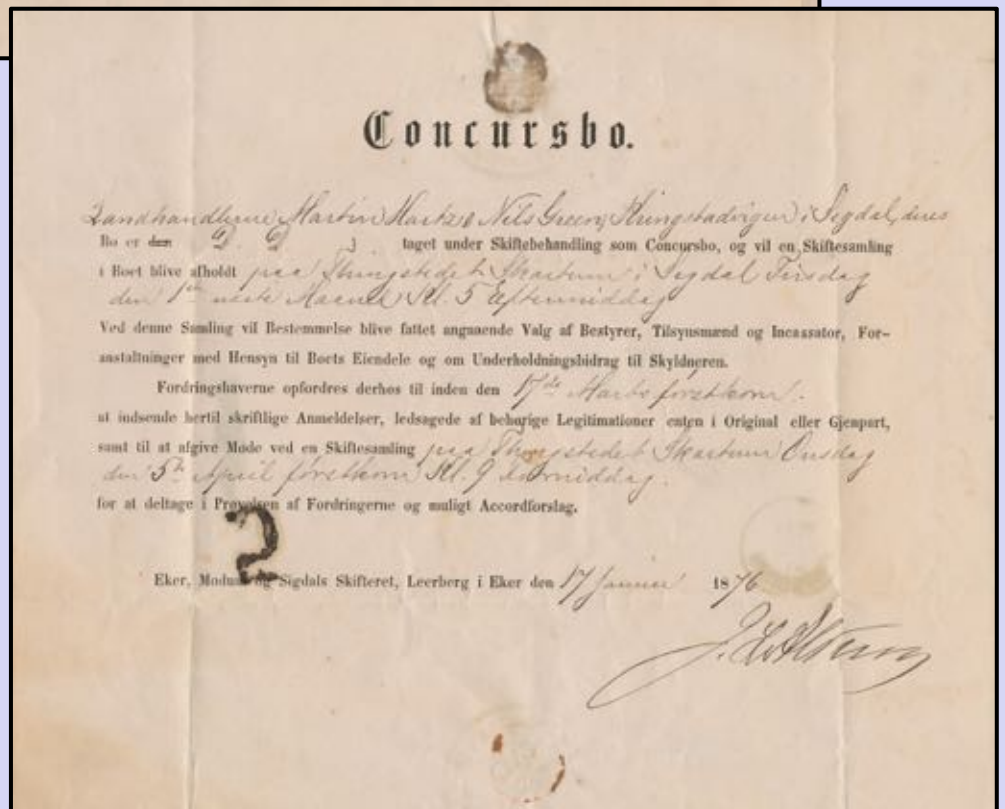 Concursbo.
Landhandlerne Martin Marka & Nils Green, i Sigdal, deres
Bo er den D. D. taget under Skiftebehandling som Concursbo, og vil en Skiftesamling
i Boet blive afholdt paa Thingstedet Skartum i Sigdal Tirsdag
den 1ste næste Maaned Kl. 5 Eftermiddag
Ved denne Samling vil Bestemmelse blive fattet angaaende Valg af Bestyrer, Tilsynsmænd og Incassator, For-
anstaltninger med Hensyn til Boets Eiendele og om Underholdningsbidrag til Skyldneren.
Fordringshaverne opfordres derhos til inden den 17de Marts førstkom.
at indsende hertil skriftlige Anmeldelser, ledsagede af behørige Legitimationer enten i Original eller Gjenpart,
samt til at afgive Møde ved en Skiftesamling paa Thingstedet Skartum Onsdag
den 5te April førstkom. Kl. 9 Formiddag.
for at deltage i Prøvelsen af Fordringerne og muligt Accordforslag.
2
Eker, Modum og Sigdals Skifteret, Leerberg i Eker den 17 Januar 1876